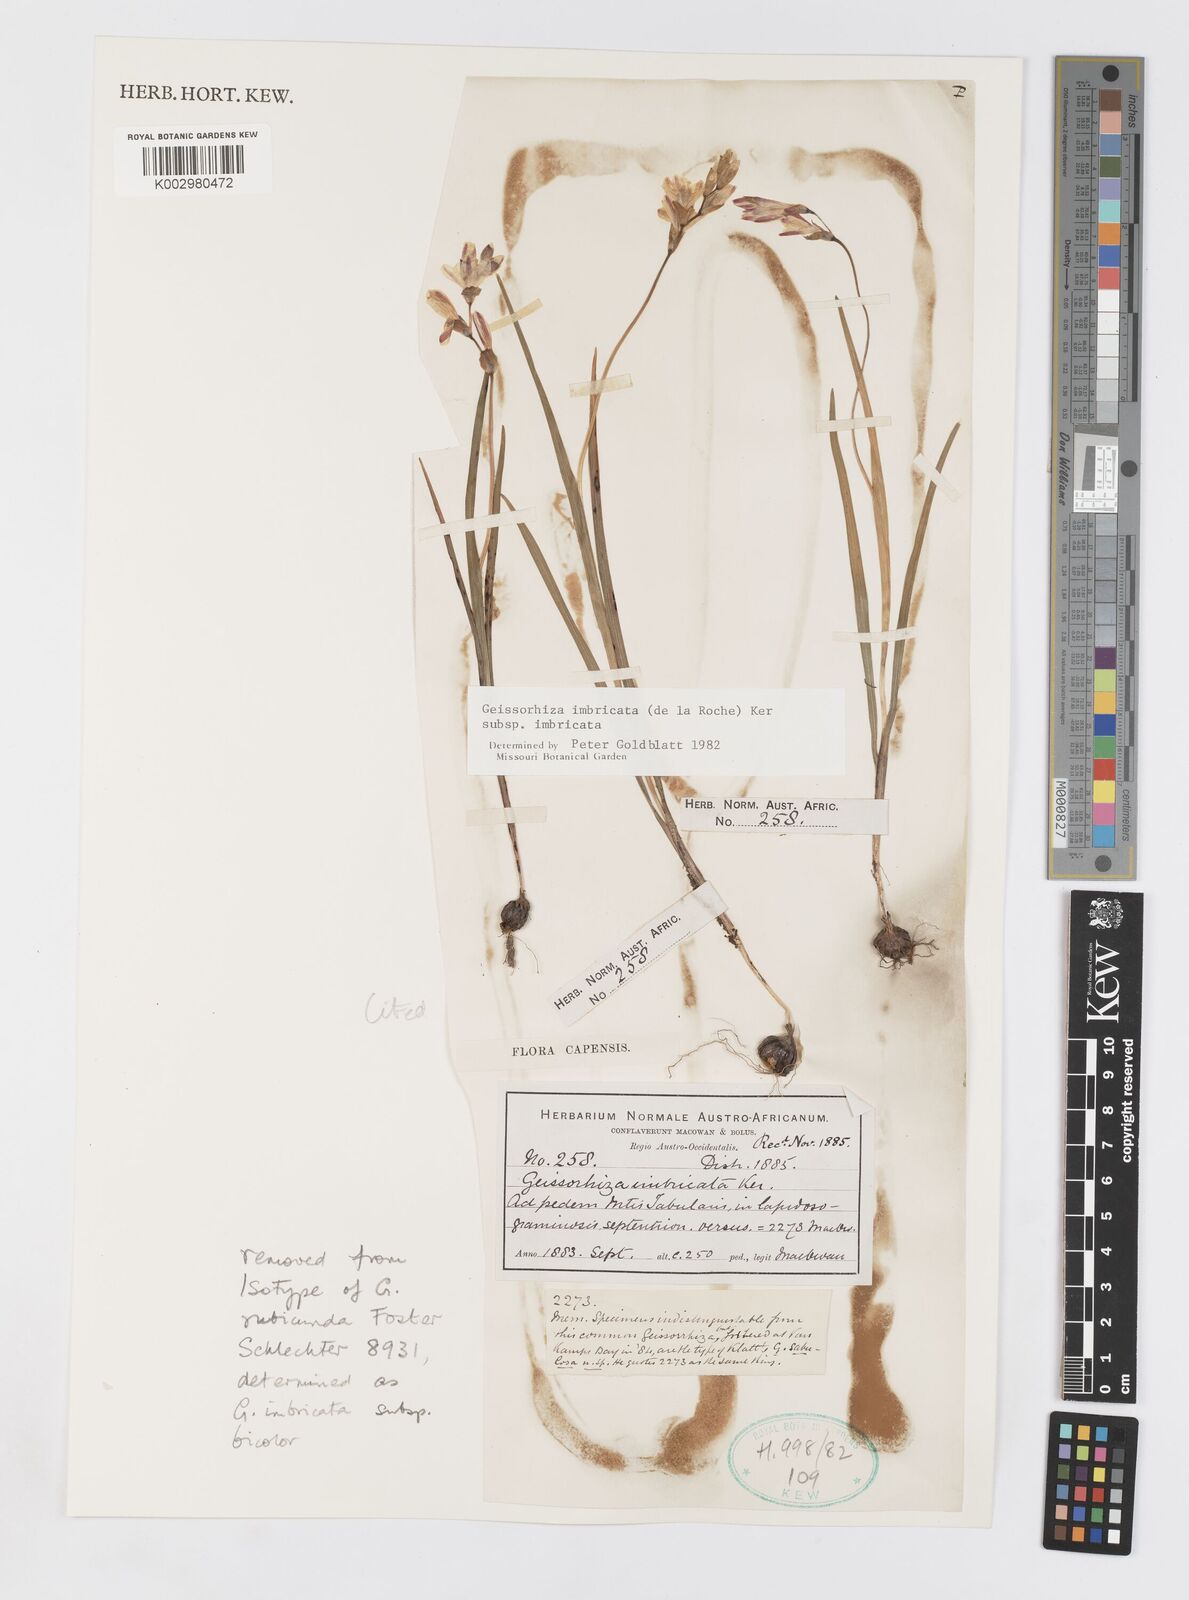 HERB. HORT. KEW.
ROYAL BOTANIC GARDENS KEW
K002980472
Geissorhiza imbricata (de la Roche) Ker
subsp. imbricata
Determined by Peter Goldblatt 1982
Missouri Botanical Garden
HERB. NORM. AUST. AFRIC.
No. 258.
HERB. NORM. AUST. AFRIC.
No 258
Cited
FLORA CAPENSIS.
HERBARIUM NORMALE AUSTRO-AFRICANUM.
CONFLAVERUNT MACOWAN & BOLUS.
Regio Austro-Occidentalis. Rect. Nov. 1885.
No. 258. Distr. 1885.
Geissorhiza imbricata Ker.
Ad pedem Mtis Tabularis, in lapidoso-
graminosis septentrion. versus. = 2273 MacOw.
Anno 1883. Sept. alt. c. 250 ped., legit MacOwan
2273.
Mem. Specimens indistinguishable from
this common Geissorrhiza, but as Van
Kamps Bay in '84, are the type of Klatt's G. Sabu-
losa n. sp. He quotes 2273 as the same thing.
removed from
Isotype of G.
rubicunda Foster
Schlechter 8931,
determined as
G. imbricata subsp.
bicolor
ROYAL BOTANIC GARDENS
H. 998/82
109
KEW
inches
centimeters
Density
Don Williams
M000827
Royal Botanic Gardens
Kew
0 1 2 3 4 5 6 7 8 9 10
cm
copyright reserved